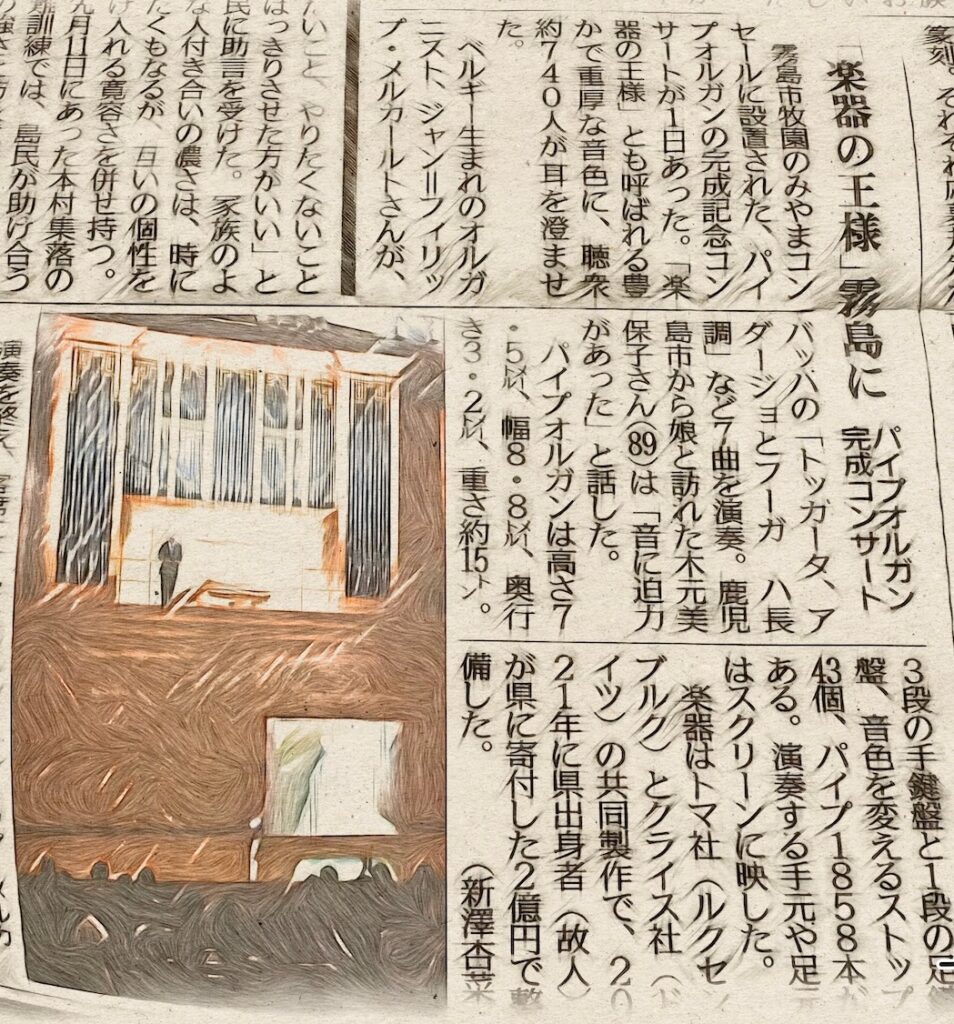 篆刻。それぞれ
「楽器の王様」霧島に
パイプオルガン
完成コンサート
霧島市牧園のみやまコン
セールに設置された、パイ
プオルガンの完成記念コン
サートが1日あった。「楽
器の王様」とも呼ばれる豊
かで重厚な音色に、聴衆
約740人が耳を澄ませ
た。
ベルギー生まれのオルガ
ニスト、ジャン＝フィリッ
プ・メルカールトさんが、
バッハの「トッカータ、ア
ダージョとフーガ　ハ長
調」など7曲を演奏。鹿児
島市から娘と訪れた木元美
保子さん(89)は「音に迫力
があった」と話した。
パイプオルガンは高さ7
・5㍍、幅8・8㍍、奥行
き3・2㍍、重さ約15㌧。
3段の手鍵盤と1段の足鍵
盤、音色を変えるストップ
43個、パイプ1858本が
ある。演奏する手元や足元
はスクリーンに映した。
楽器はトマ社（ルクセン
ブルク）とクライス社（ド
イツ）の共同製作で、20
21年に県出身者（故人）
が県に寄付した2億円で整
備した。
（新澤杏菜
たいこと、やりたくないこと
はっきりさせた方がいい」と
民に助言を受けた。家族のよ
な人付き合いの濃さは、時に
たくもなるが、互いの個性を
け入れる寛容さを併せ持つ。
月11日にあった本村集落の
訓練では、島民が助け合う
演奏を終え、